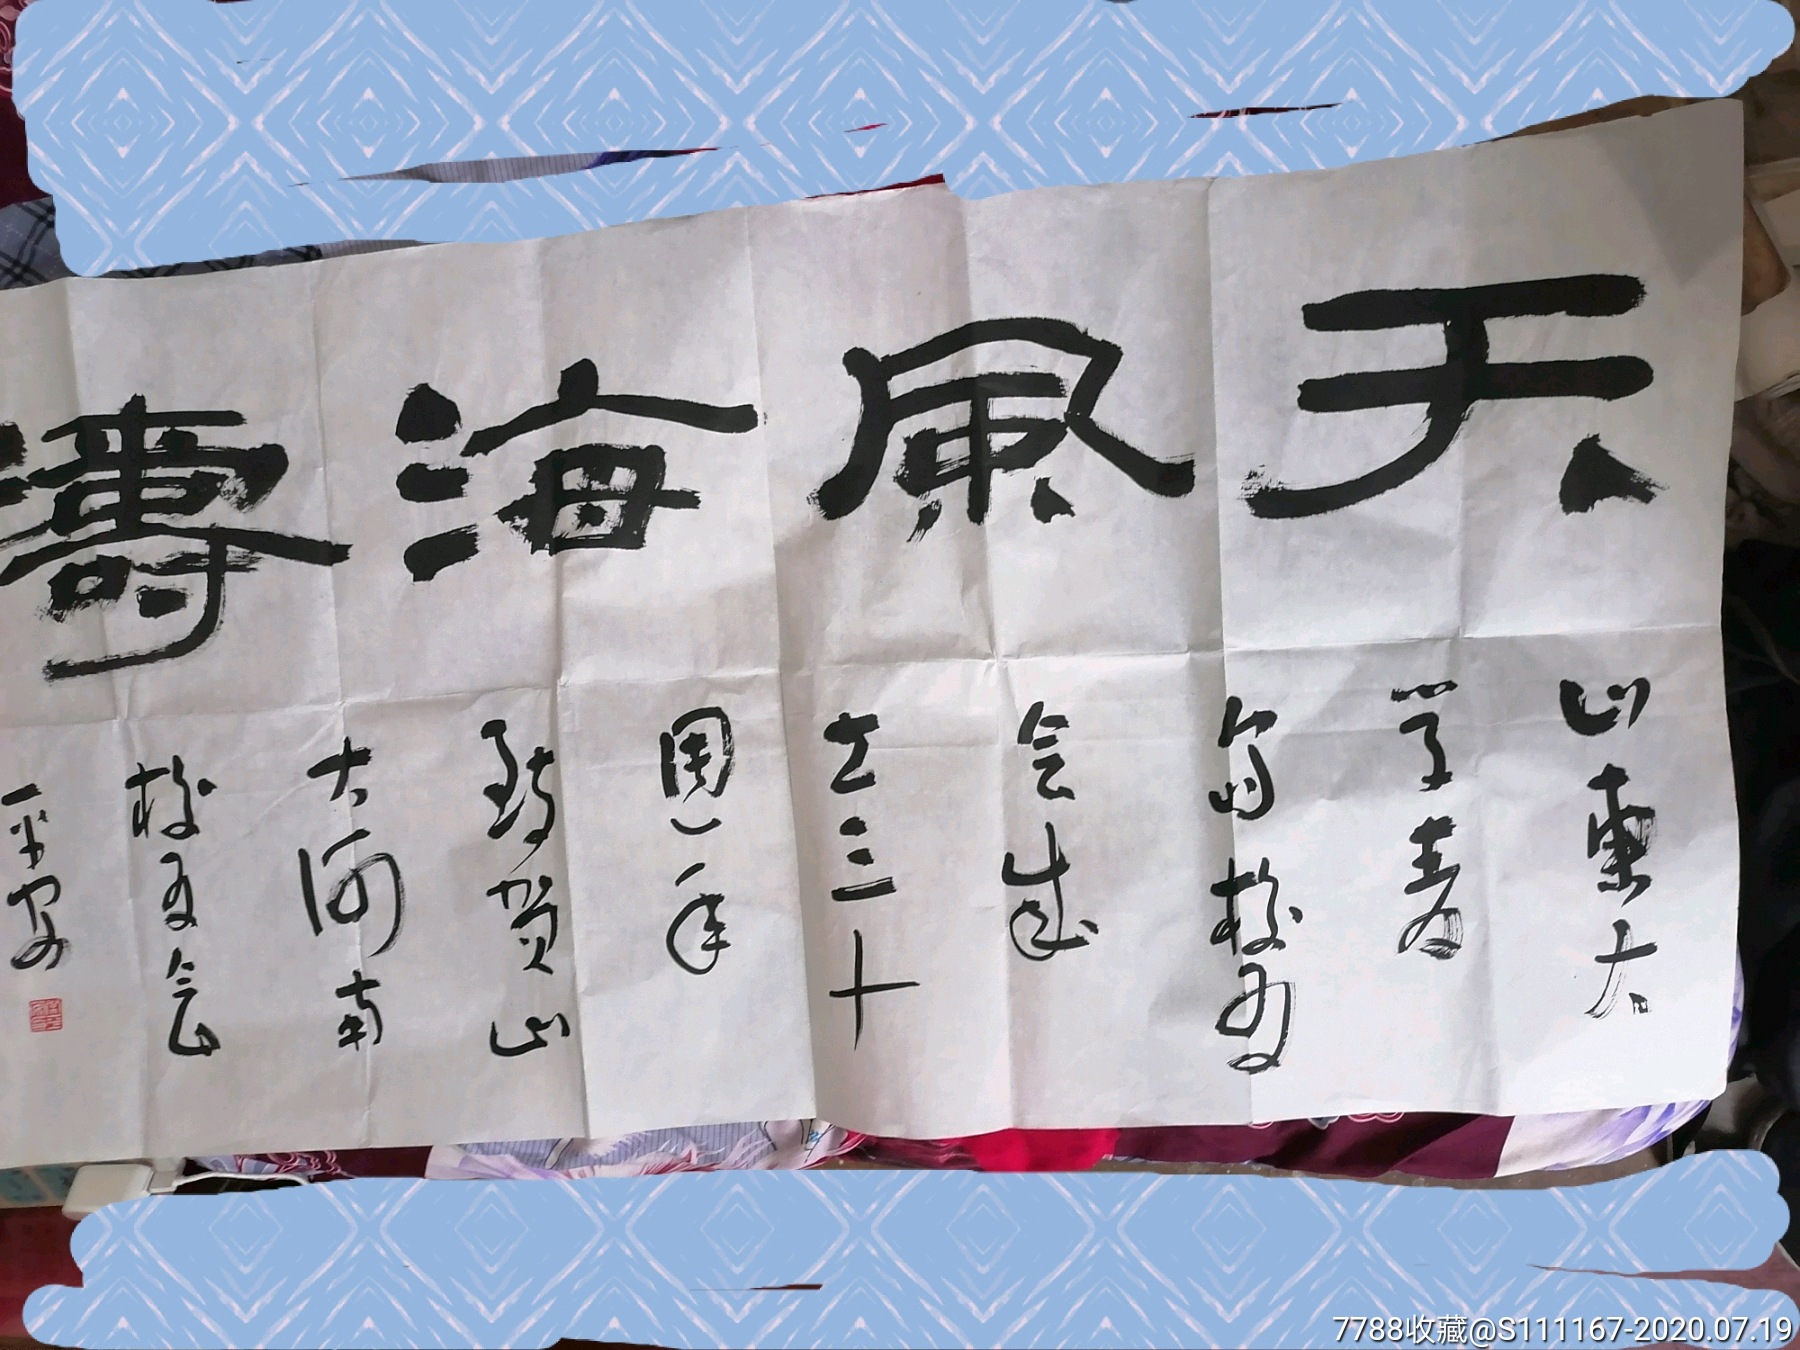 天風海濤
山東大
学青
島校友
会成
立三十
周年
致贺山
大河南
校友会
7788收藏@S111167-2020.07.19